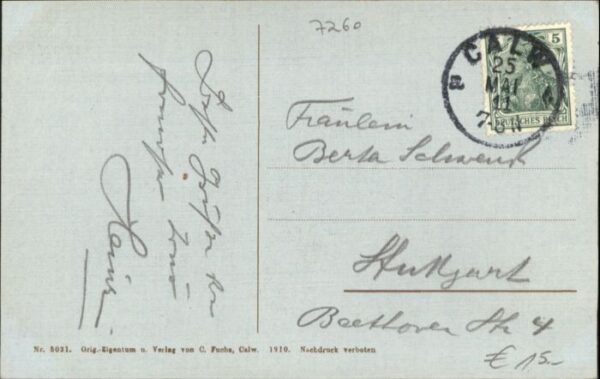 7260
CALW
25
MAI
11
7-8N
a
5
DEUTSCHES REICH
Beste Grüße
Heiner
Fräulein
Berta Schwenk
Stuttgart
Beethoven Str 4
Nr. 5031. Orig.-Eigentum u. Verlag von C. Fuchs, Calw. 1910. Nachdruck verboten
€ 15.-